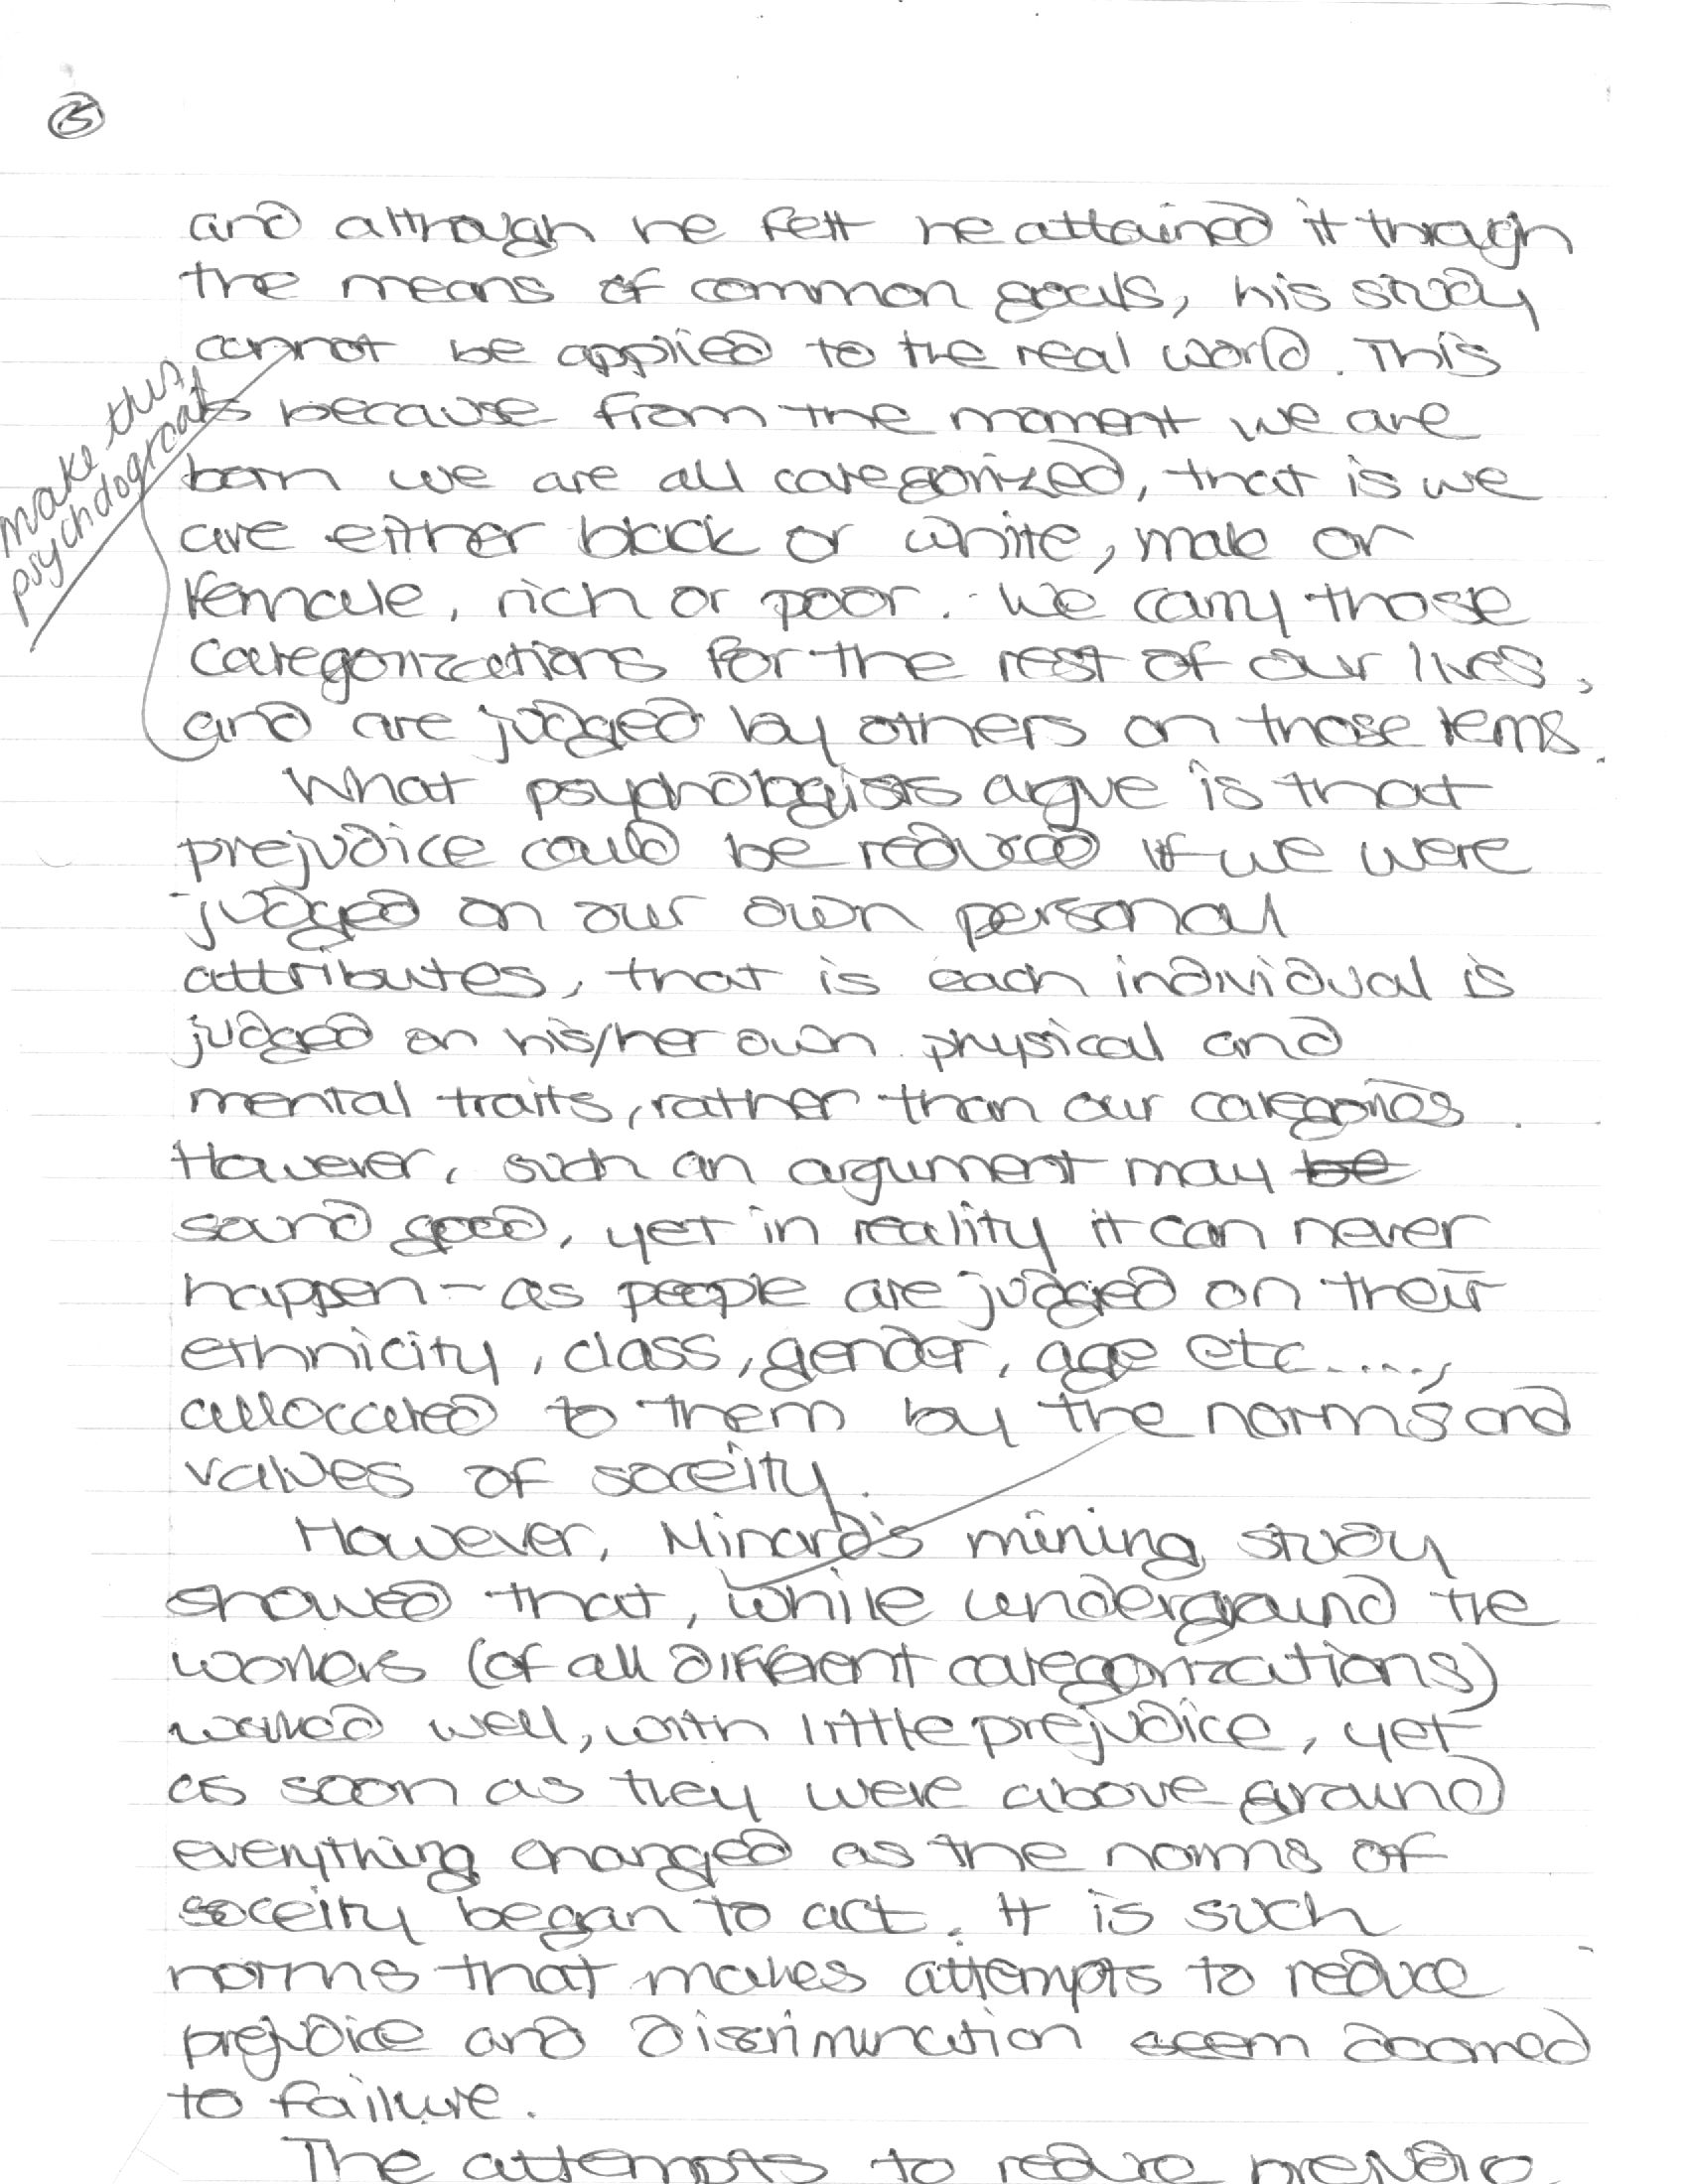 5
and although he felt he attained it through
the means of common goals, his study
cannot be applied to the real world. This
is because from the moment we are
born we are all categorized, that is we
are either black or white, male or
female, rich or poor. We carry those
categorizations for the rest of our lives,
and are judged by others on those terms.
make this
psychological
What psychologists argue is that
prejudice could be reduced if we were
judged on our own personal
attributes, that is each individual is
judged on his/her own physical and
mental traits, rather than our categories.
However, such an argument may be
sound good, yet in reality it can never
happen - as people are judged on their
ethnicity, class, gender, age etc....,
allocated to them by the norms and
values of soceity.
However, Minard's mining study
showed that, while underground the
workers (of all different categorizations)
worked well, with little prejudice, yet
as soon as they were above ground
everything changed as the norms of
soceity began to act. It is such
norms that makes attempts to reduce
prejudice and discrimination seem doomed
to failure.
The attempts to reduce prejudice